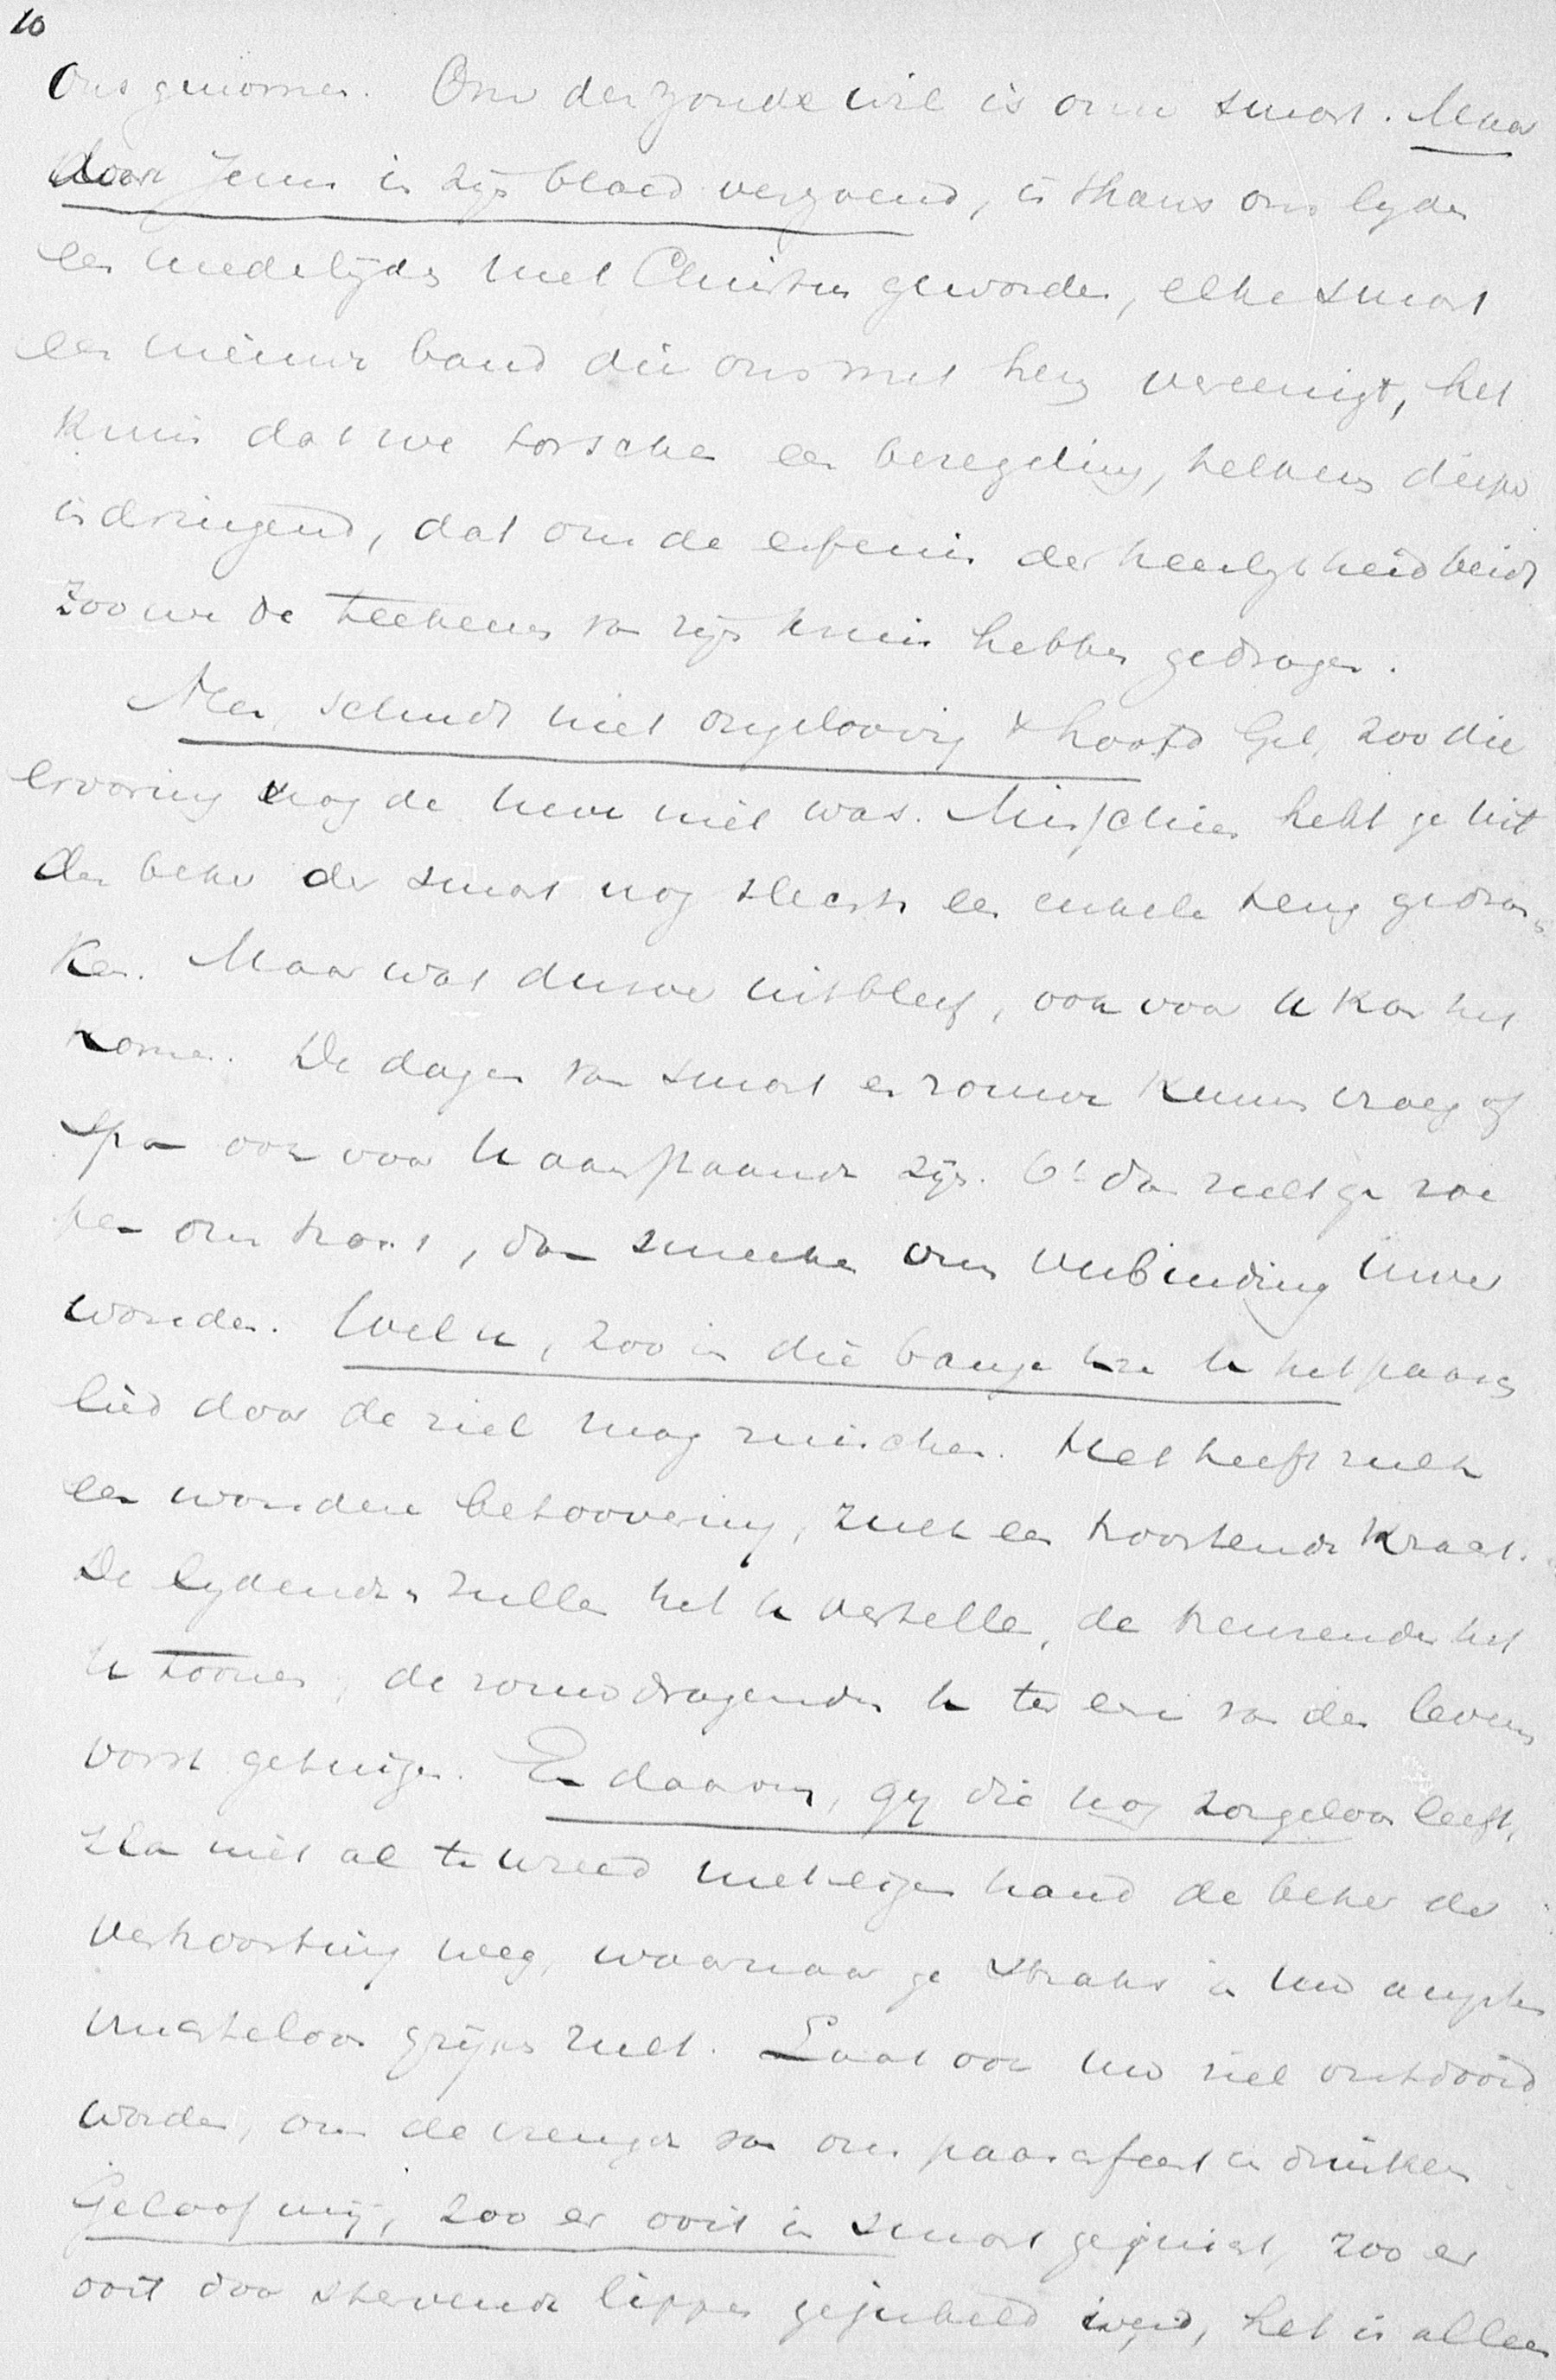 10
ons genomen. Om der zonde wil is onze smart. Maar
door Jezus in zijn bloed verzoend, is thans ons lyden
een medelijden met Christus geworden, elke smart
een nieuwe band die ons met hem vereenigt, het
kruis dat we torschen een bezegeling, telkens dieper
indringend, dat ons de erfenis der heerlykheid beidt
zoo we de teekenen van zijn kruis hebben gedragen.
Men, schudt niet ongeloovig 't hoofd Gel, zoo die
ervaring nog de uwe niet was. Misschien hebt ge uit
den beker der smart nog slechts een enkele teug gedron-
ken. Maar wat dusver uitbleef, ook voor u kan het
komen. De dagen van smart en rouwe kunnen vroeg of
spa ook voor u aanstaande zijn. O! dan zult ge roe
pen om troost, dan smeeken om verbinding uwer
wonden. Wel u, zoo in die bange ure u het paasch
lied door de ziel mag ruischen. Het heeft zulk
een wondere betoovering, zulk een troostende kracht.
De lydenden zullen het u vertellen, de treurenden het
u toonen, de rouwdragenden u ter eere van den levens
vorst getuigen. En daarom, gy die nog zorgeloos leeft,
sla niet al te wreed met eigen hand de beker der
vertroosting weg, waarnaar ge straks in uw angsten
rusteloos grijpen zult. Laat ook uw ziel ontdooid
worden, om de vreugde van ons paaschfeest in drinken
Geloof mij, zoo er ooit in smart gejuicht, zoo er
ooit door stervende lippen gejubeld werd, het is alleen